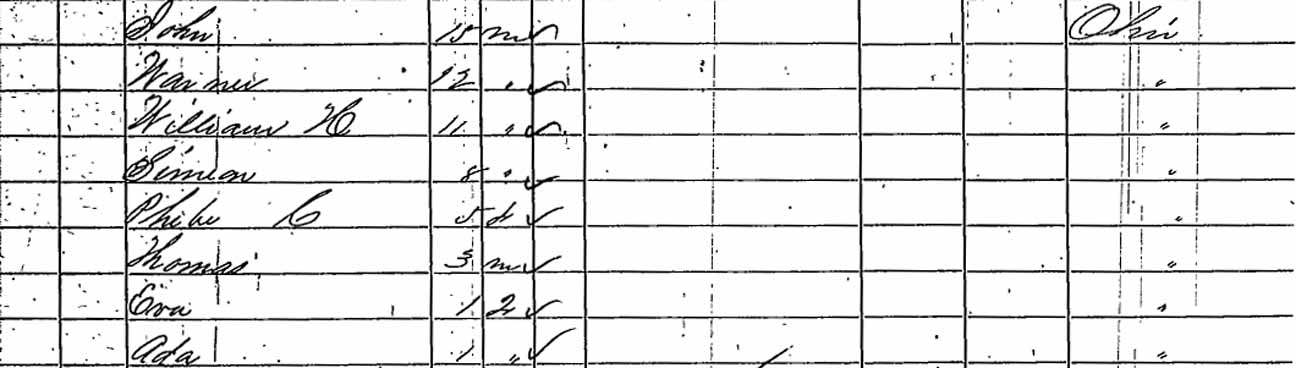 John 15 m ✓ Ohio
Warner 12 " ✓ "
William H 11 " ✓ "
Simeon 8 " ✓ "
Phebe C 5 f ✓ "
Thomas 3 m ✓ "
Eva 1 f ✓ "
Ada 1 " ✓ "